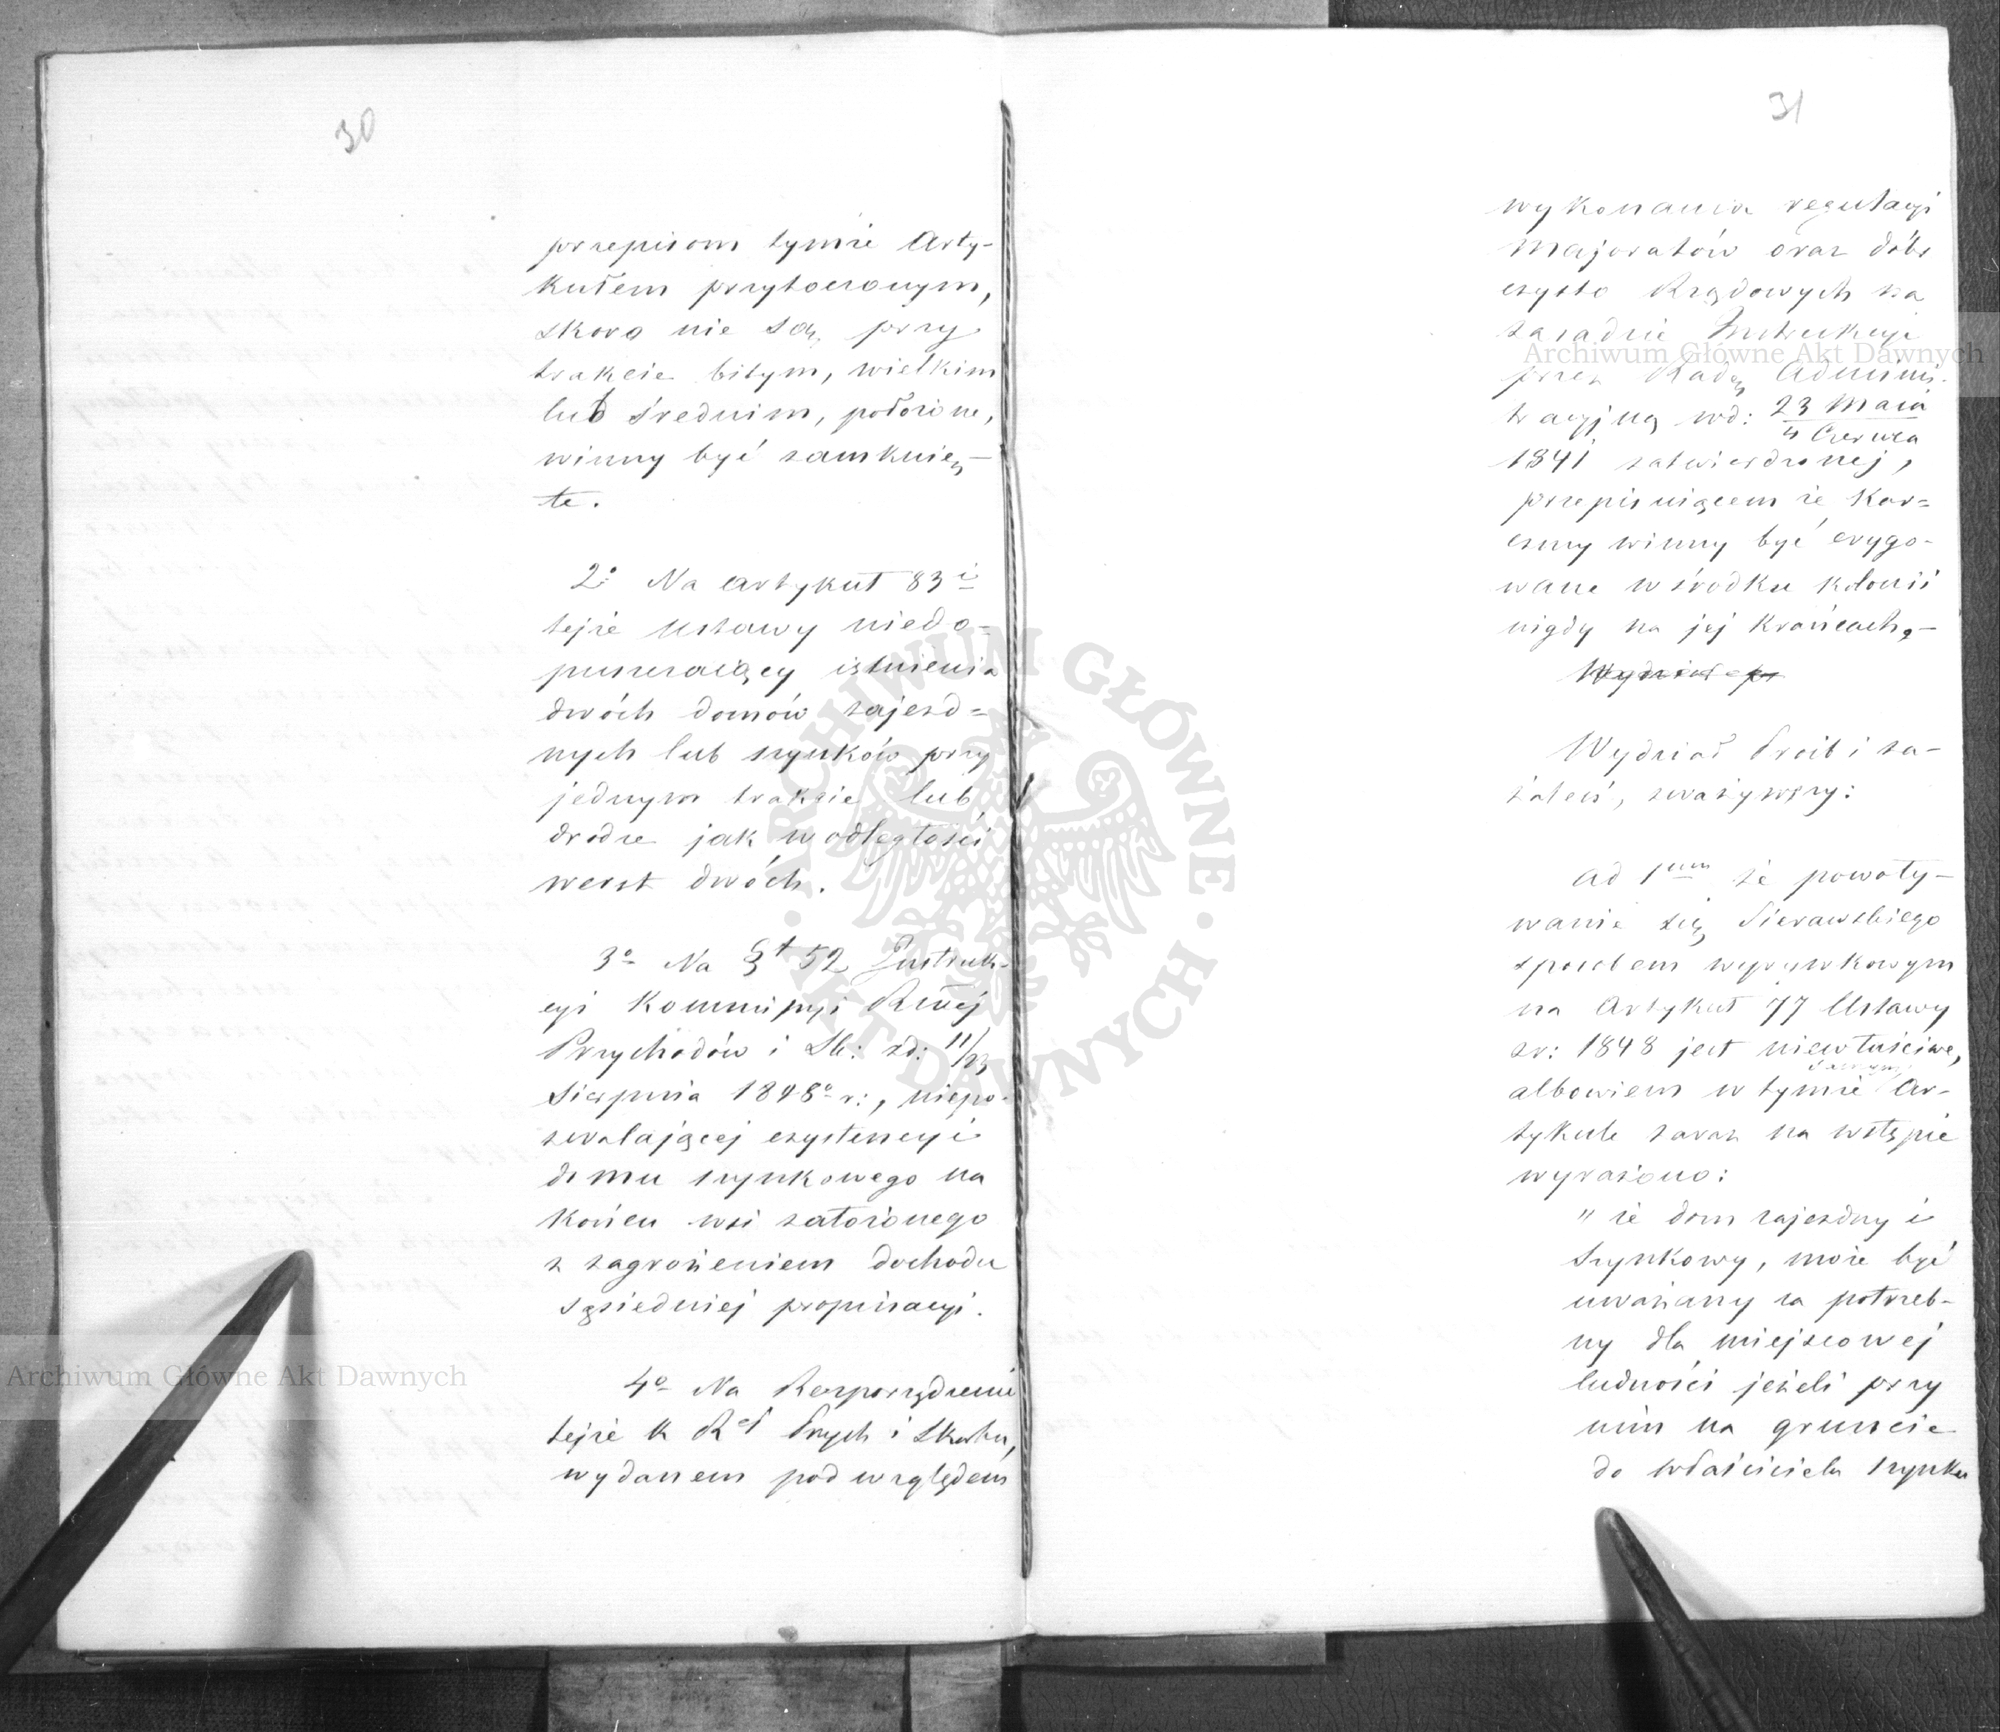 30
przepisom tymże Arty-
kułem przytoczonym,
skoro nie są przy
trakcie bitym, wielkim
lub średnim, położone,
winny być zamknię-
te.
2° Na artykuł 83 i
tejże Ustawy niedo-
puszczaiący istnienia
dwóch domów zajezd=
nych lub szynków przy
jednym trakcie lub
drodze jak w odległości
werst dwóch.
3° Na § 52 Instruk-
cyi Kommissyi Rwéj
Przychodów i Sk: zd: 11/23
Sierpnia 1848° r:, niepo-
zwalającej exystencyi
domu szynkowego na
końcu wsi założonego
z zagrożeniem dochodu
sąsiedniej propinacyi.
4° Na Rozporządzenie
tejże K R Przych i Skarbu,
wydanem pod względem
31
wykonania regulacyi
Majoratów oraz dóbr
czysto Rządowych na
zasadzie Instrukcyi
przez Radę Adminis-
tracyjną pod: 23 Maia
4 Czerwca
1841 zatwierdzonej,
przepisuiącem że Kar=
czmy winny być erygo-
wane w środku kolonii
nigdy na jej krańcach,-
Wydział pr
Wydział Próśb i za-
żaleń, zważywszy:
Ad 1um że powoły-
wanie się Sierawskiego
sposobem wyrywkowym
na Artykuł 77 Ustawy
zr: 1848 jest niewłaściwe,
albowiem w tymże Ar-
tykule zaraz na wstępie
wyrażono:
" że dom zajezdny i
Szynkowy, może być
uważany za potrzeb-
ny dla miejscowej
ludności jeżeli przy
nim na gruncie
do właściciela szynku
Archiwum Główne Akt Dawnych
Archiwum Główne Akt Dawnych
ARCHIWUM GŁÓWNE AKT DAWNYCH